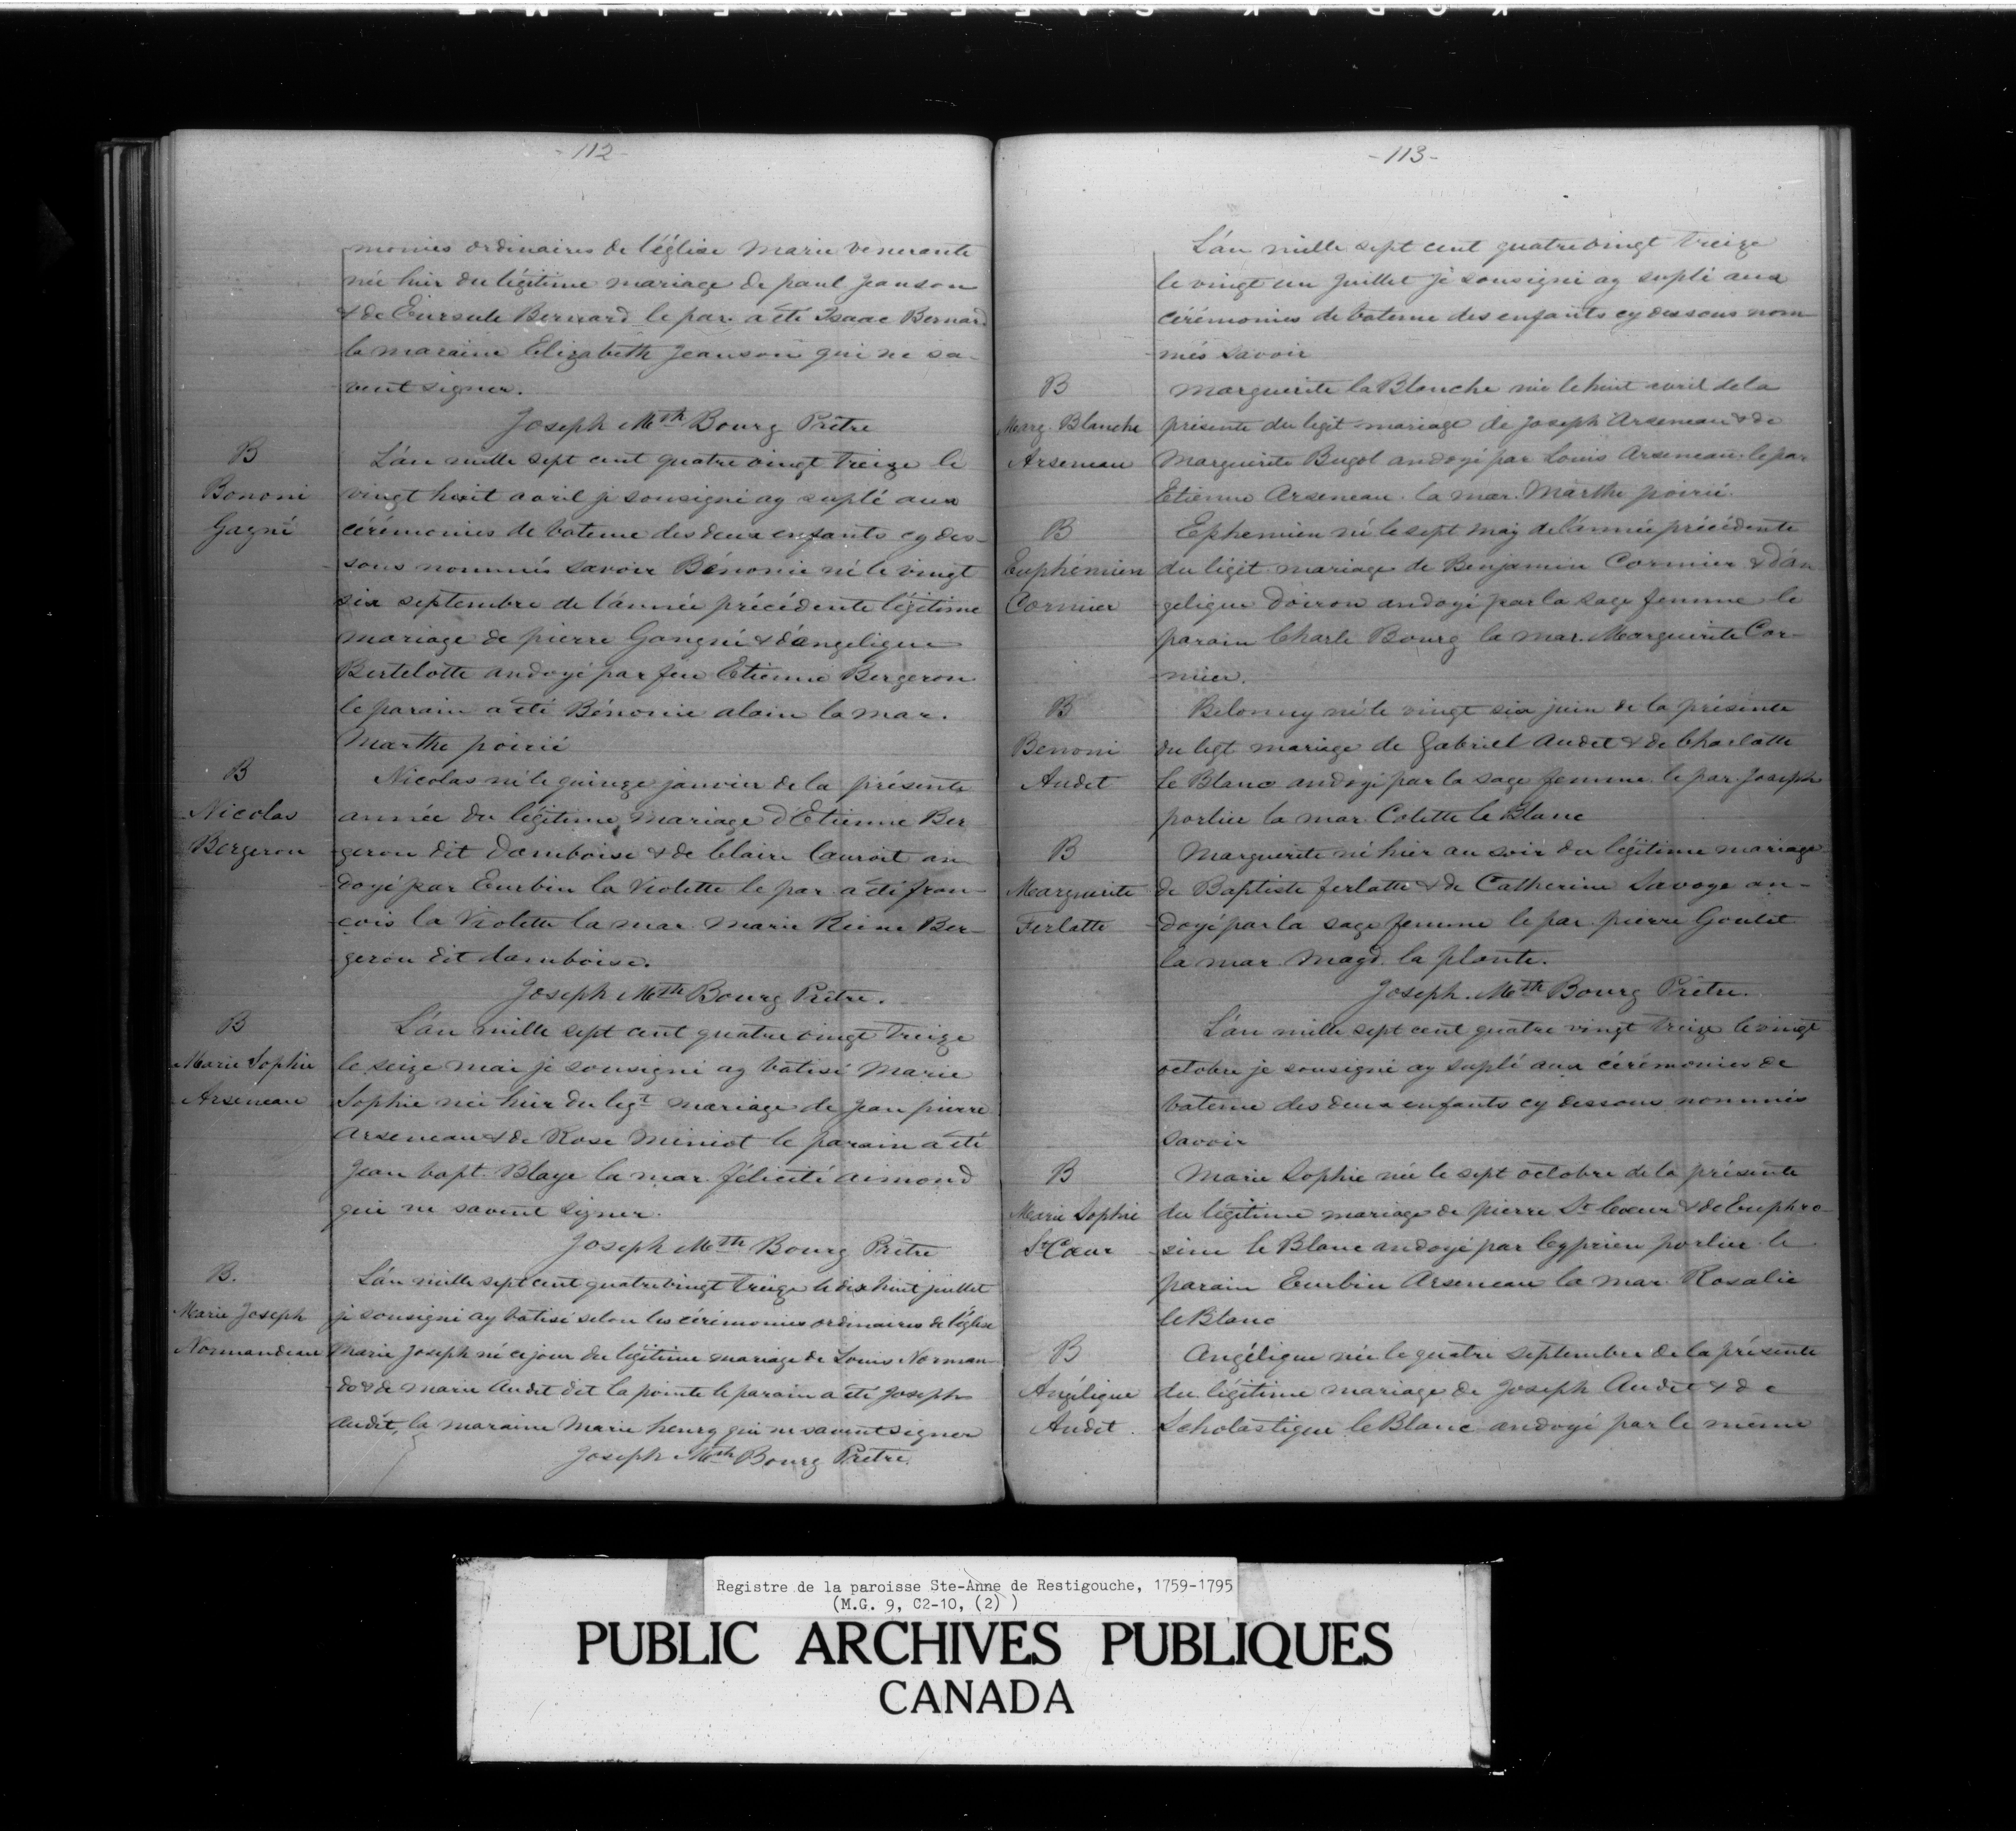 - 112 -
monies ordinaires de l'église Marie venerante
née hier du légitime mariage de paul Jeanson
& de Eursule Bernard le par. a été Isaac Bernard
la maraine Elizabeth Jeanson qui ne sa-
vent signer.
Joseph Mth Bourg Prêtre
B
Bononi
Gagné
L'an mille sept cent quatre vingt treize le
vingt huit avril je sousigné ay suplé aux
cérémonies de bateme des deux enfants cy des-
sous nommés savoir Bénonie né le vingt
six septembre de l'année précédente légitime
mariage de pierre Gangné & d'angelique
Bertelotte andoyé par feu Etienne Bergeron
le parain a été Bénonie alain la mar.
Marthe poirié
B
Nicolas
Bergeron
Nicolas né le quinze janvier de la présente
année du légitime mariage d'Etienne Ber
geron dit Damboise & de Claire Cauroit an
doyé par Eurbin la Violette le par. a été fran-
cois la Violette la mar. Marie Reine Ber-
geron dit damboise.
Joseph Mth Bourg Prêtre.
B
Marie Sophie
Arseneau
L'an mille sept cent quatre vingt treize
le seize mai je sousigné ay batisé Marie
Sophie née hier du legt mariage de Jean pierre
Arseneau & de Rose Miniot le parain a été
Jean bapt. Blaye la mar. félicité aimond
qui ne savent signer.
Joseph Mth Bourg Prêtre
B.
Marie Joseph
Normandeau
L'an mille sept cent quatre vingt treize le dix huit juillet
je sousigné ay batisé selon les cérémonies ordinaires de l'église
Marie Joseph né ce jour du légitime mariage de Louis Norman-
do & de Marie Audet dit la pointe le parain a été Joseph
Audet, la maraine Marie henry qui ne savent signer
Joseph Mth Bourg Prêtre.
- 113 -
L'an mille sept cent quatre vingt treize
le vingt un Juillet je sousigné ay suplé aux
cérémonies de bateme des enfants cy dessous nom
més savoir
B
Marg. Blanche
Arseneau
Marguerite la Blanche née le huit avril de la
présente du légit mariage de Joseph Arseneau & de
Marguerite Bugol andoyé par Louis Arseneau le par
Etienne Arseneau la mar. Marthe poirié.
B
Euphémien
Cormier
Ephemien né le sept may de l'année précédente
du légit mariage de Benjamin Cormier & d'an
gelique Doiron andoyé par la sage femme le
parain Charle Bourg la mar. Marguerite Cor-
mier.
B
Benoni
Audet
Belonny né le vingt six juin de la présente
du legt mariage de Gabriel Audet & de Charlotte
le Blanc andoyé par la sage femme le par. Joseph
porlier la mar. Colette le Blanc
B
Marguerite
Ferlatte
Marguerite né hier au soir du légitime mariage
de Baptiste ferlatte & de Catherine Savoye an-
doyé par la sage femme le par. pierre Goulet
la mar. Magd. la plante.
Joseph Mth Bourg Prêtre.
L'an mille sept cent quatre vingt treize le vingt
octobre je sousigné ay suplé aux cérémonies de
bateme des deux enfants cy dessous nommés
savoir
B
Marie Sophie
St Cœur
Marie Sophie née le sept octobre de la présente
du légitime mariage de pierre St Cœur & de Euphro-
sine le Blanc andoyé par Cyprien porlier le
parain Eurbin Arseneau la mar. Rosalie
le Blanc
B
Angélique
Audet
Angélique née le quatre septembre de la présente
du légitime mariage de Joseph Audet & de
Scholastique le Blanc andoyé par le même
Registre de la paroisse Ste-Anne de Restigouche, 1759-1795
(M.G. 9, C2-10, (2) )
PUBLIC ARCHIVES PUBLIQUES
CANADA